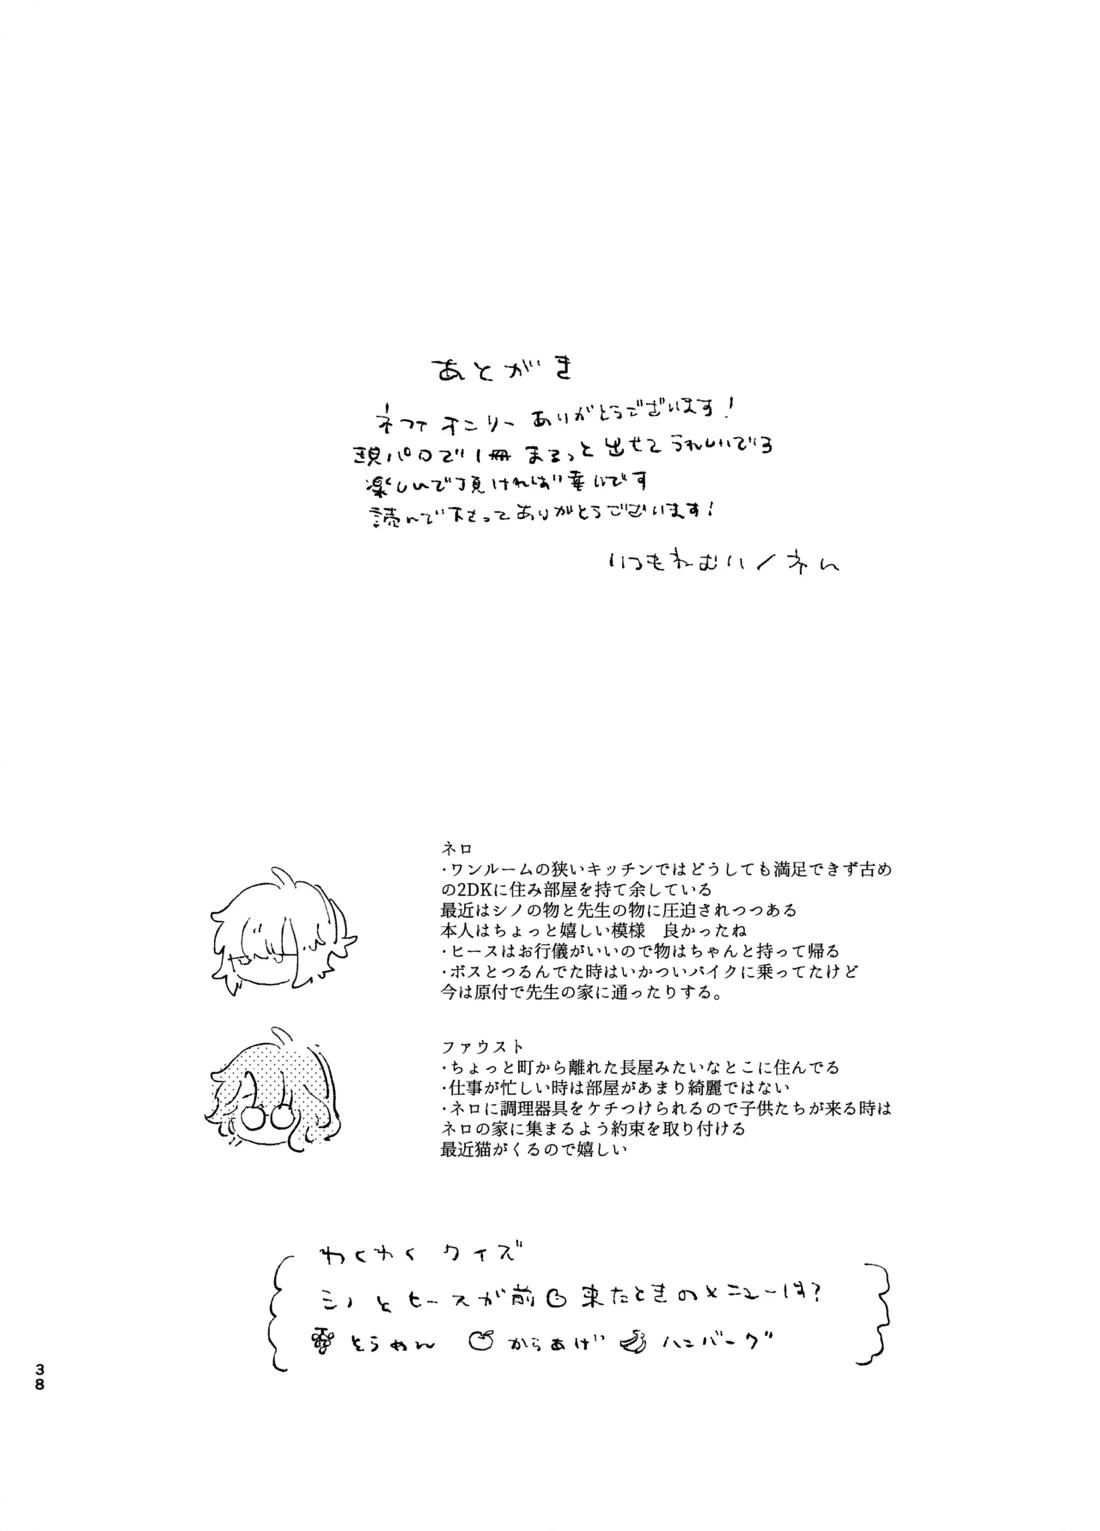 あとがき
ネファオンリーありがとうございます!
現パロで1冊まるっと出せてうれしいです
楽しんで頂ければ幸いです
読んで下さってありがとうございます!
いつもねむい/ネん
ネロ
・ワンルームの狭いキッチンではどうしても満足できず古め
の2DKに住み部屋を持て余している
最近はシノの物と先生の物に圧迫されつつある
本人はちょっと嬉しい模様 良かったね
・ヒースはお行儀がいいので物はちゃんと持って帰る
・ボスとつるんでた時はいかついバイクに乗ってたけど
今は原付で先生の家に通ったりする。
ファウスト
・ちょっと町から離れた長屋みたいなとこに住んでる
・仕事が忙しい時は部屋があまり綺麗ではない
・ネロに調理器具をケチつけられるので子供たちが来る時は
ネロの家に集まるよう約束を取り付ける
最近猫がくるので嬉しい
わくわくクイズ
シノとヒースが前の来たときのメニューは?
そうめん からあげ ハンバーグ
38